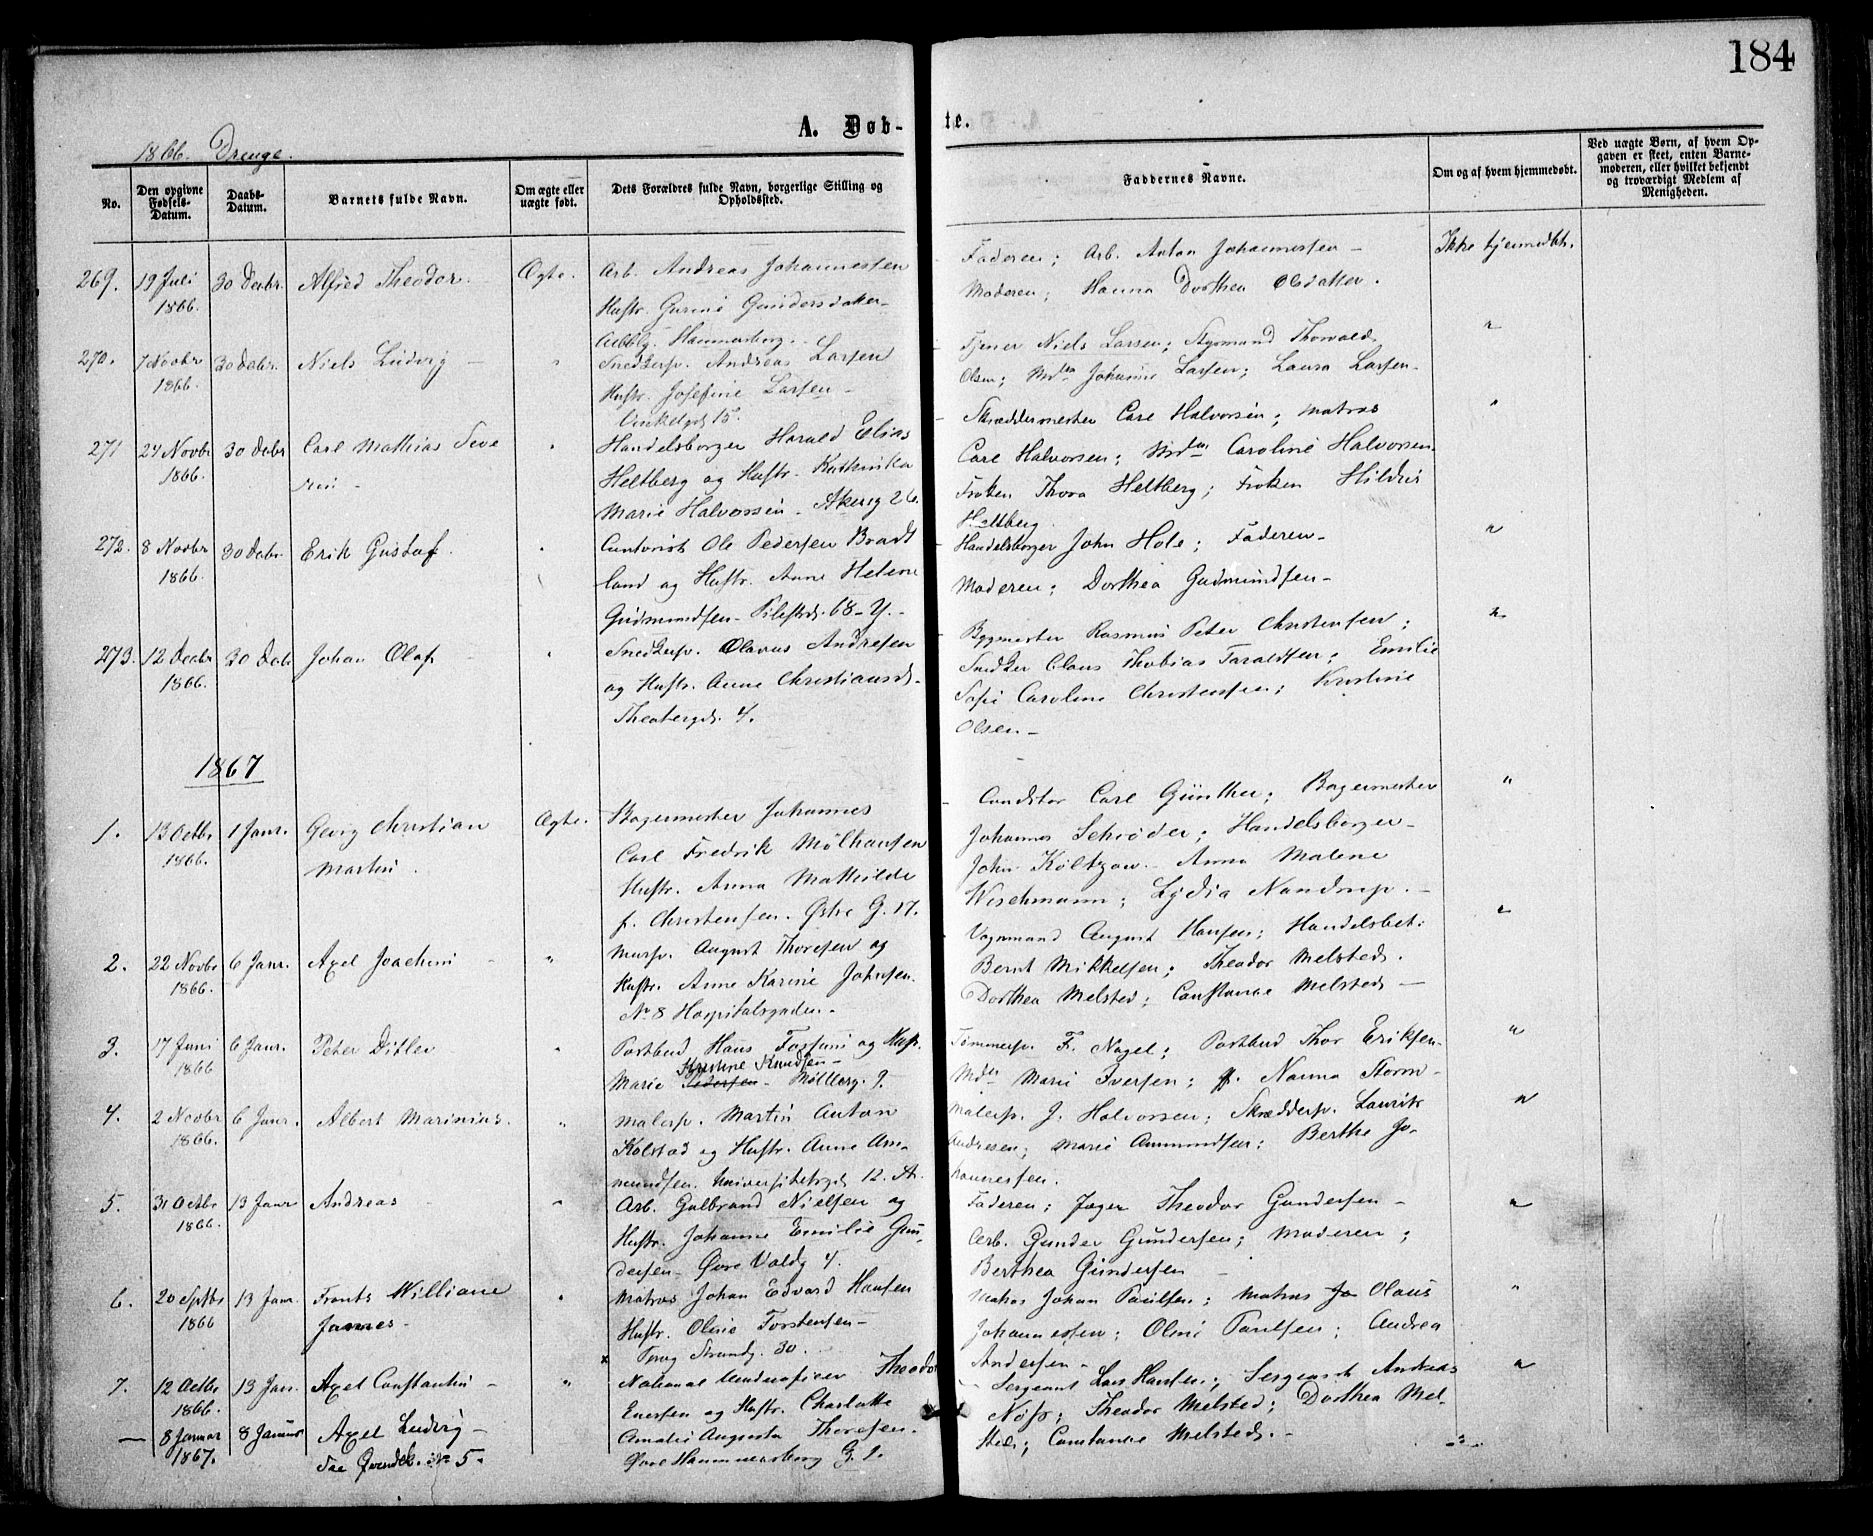 184
A. Døb- te.
1866. Drenge.
No.
Den opgivne Fødsels-Datum.
Daabs-Datum.
Barnets fulde Navn.
Om ægte eller uægte født.
Dets Forældres fulde Navn, borgerlige Stilling og Opholdssted.
Faddernes Navne.
Om og af hvem hjemmedøbt.
Ved uægte Børn, af hvem Opgaven er skeet, enten Barnemoderen, eller hvilket bekjendt og troværdigt Medlem af Menigheden.
269. 19 Juli 1866. 30 Decbr. Alfred Theodor. Ægte. Arb. Andreas Johannessen
Hustr. Gurine Gundersdatter
Hammersborg.
Faderen; Arb. Anton Johannessen –
Moderen; Hanna Dorthea Olsdatter.
Ikke hjemmedbt.
270. 7 Novbr 1866. 30 Decbr. Niels Ludvig – " Snedkersv. Andreas Larsen
Hustr. Josefine Larsen –
15.
Tjener Niels Larsen; Styrmand Thorvald
Olsen; Mdm Johanne Larsen; Laura Larsen –
"
271 24 Novbr 1866. 30 Decbr Carl Mathias Seve
rin –
" Handelsborger Harald Elias
Heltberg og Hustr. Kathinka
Marie Halvorsen – Akersg 26.
Skræddermester Carl Halvorsen; Matros
Carl Halvorsen; Mdm Caroline Halvorsen.
Frøken Thora Heltberg; Frøken Hildur
Heltberg.
"
272. 8 Novbr 1866. 30 Decbr. Erik Gustaf. " Contorist Ole Pedersen Bradt
land og Hustr. Anne Helene
Gudmundsen – Pilestrd. 68 –
Handelsborger John Hole; Faderen –
Moderen; Dorthea Gudmundsen –
"
273. 12 Decbr 1866. 30 Decbr Johan Olaf – " Snedkersv. Olavus Andresen
og Hustr. Anne Christiansd.
Theatergd. 4.
Bygmester Rasmus Peter Christensen;
Snedker Claus Thobias Taraldsen; Emilie
Sofie Caroline Christensen; Kristine
Olsen –
"
1867
1. 13 Octbr 1866. 1 Janr. Georg Christian
Martin.
Ægte. Bagermester Johannes
Carl Fredrik Mølhausen
Hustr. Anna Mathilde
f. Christensen. Østre G. 17.
Conditor Carl Günther; Bagermester
Johannes Schrøder; Handelsborger –
John Køltzow – Anna Malene
Wischmann; Lydia Nandrup. –
"
2. 22 Novbr 1866. 6 Janr. Axel Joachim – " Mursv. August Thoresen og
Hustr. Anne Karine Johnsen.
No 8 Hospitalsgaden –
Vognmand August Hansen; Handelsbet:
Bernt Mikkelsen; Theodor Melsted.
Dorthea Melsted; Constance Melsted –
"
3. 17 Juni 1866 6 Janr. Peter Ditlev " Postbud Hans Tostum og Hustr.
Kirstine Knudsen –
Marie Pedersen – Møllerg. 9.
Tømmersv. F. Nagel; Postbud Thor Eriksen –
Mdm Marie Iversen; Nanna Storm –
"
4. 2 Novbr 1866. 6 Janr. Albert Marinius. " Malersv. Martin Anton
Kolstad og Hustr. Anne Am-
mundsen. Universitetsgd 12.
Malersv. J. Halvorsen; Skræddersv. Laurits
Andresen; Marie Ammundsen; Berthe Jo-
hannessen.
"
5. 31 Octbr 1866. 13 Janr Andreas – " Arb. Gulbrand Nielsen og
Hustr. Johanne Emilie Gun-
dersen – Øvre Voldg 4.
Faderen; Jæger Theodor Gundersen –
Arb. Gunder Gundersen; Moderen;
Berthea Gundersen –
"
6. 20 Septbr 1866 13 Janr. Frants William
James –
" Matros Johan Edvard Hansen
Hustr. Oline Torstensen –
Strandg. 30.
Matros Johan Paulsen; Matros Jo Olaus
Johannessen; Oline Paulsen; Andrea
Andersen –
"
7. 12 Octbr 1866. 13 Jan. Axel Constantin – " x National Underofficeer Theodor
Enersen og Hustr. Charlotte
Amalie Augusta Thoresen.
Øvre Hammersborg G. 9.
Sergeant Lars Hansen; Sergeant Andreas
Theodor Melsted; Dorthea Mel-
sted; Constance Melsted. –
"
— 8 Januar 1867. 8 Januar Axel Ludvig –
No 5.